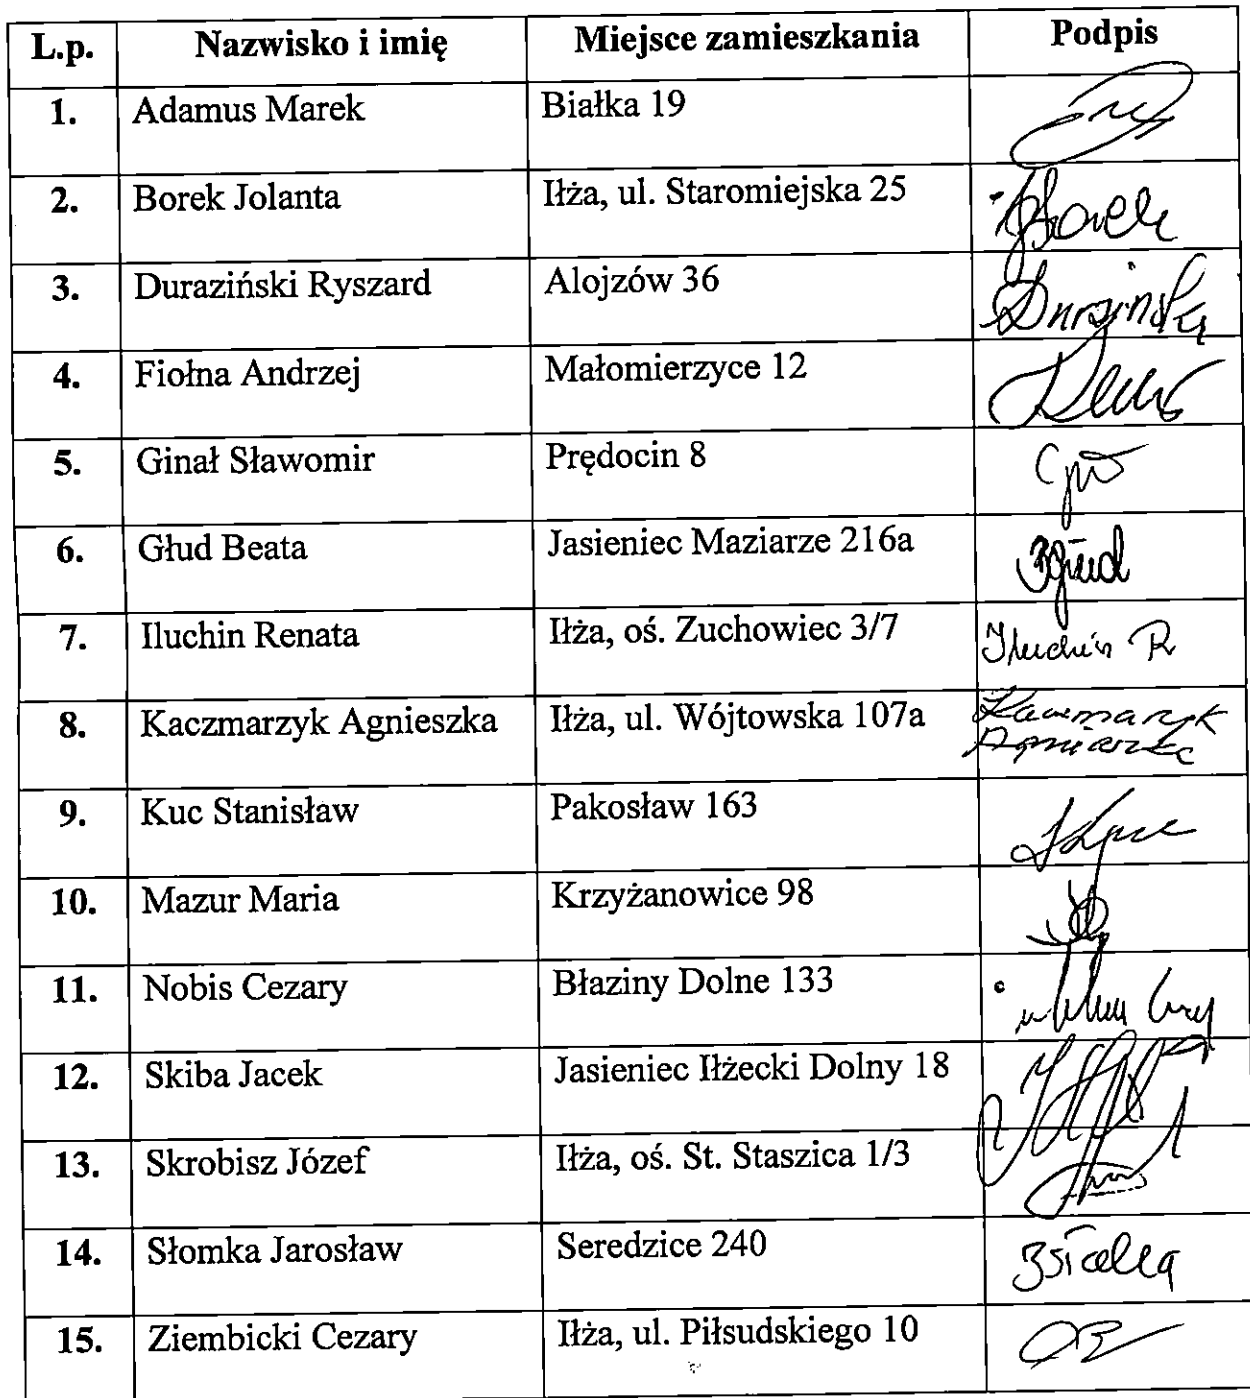 L.p. Nazwisko i imię Miejsce zamieszkania Podpis
1. Adamus Marek Białka 19
2. Borek Jolanta Iłża, ul. Staromiejska 25
3. Duraziński Ryszard Alojzów 36
4. Fiołna Andrzej Małomierzyce 12
5. Ginał Sławomir Prędocin 8
6. Głud Beata Jasieniec Maziarze 216a
7. Iluchin Renata Iłża, oś. Zuchowiec 3/7 Iluchin R
8. Kaczmarzyk Agnieszka Iłża, ul. Wójtowska 107a Kaczmarzyk
Agnieszka
9. Kuc Stanisław Pakosław 163
10. Mazur Maria Krzyżanowice 98
11. Nobis Cezary Błaziny Dolne 133
12. Skiba Jacek Jasieniec Iłżecki Dolny 18
13. Skrobisz Józef Iłża, oś. St. Staszica 1/3
14. Słomka Jarosław Seredzice 240
15. Ziembicki Cezary Iłża, ul. Piłsudskiego 10